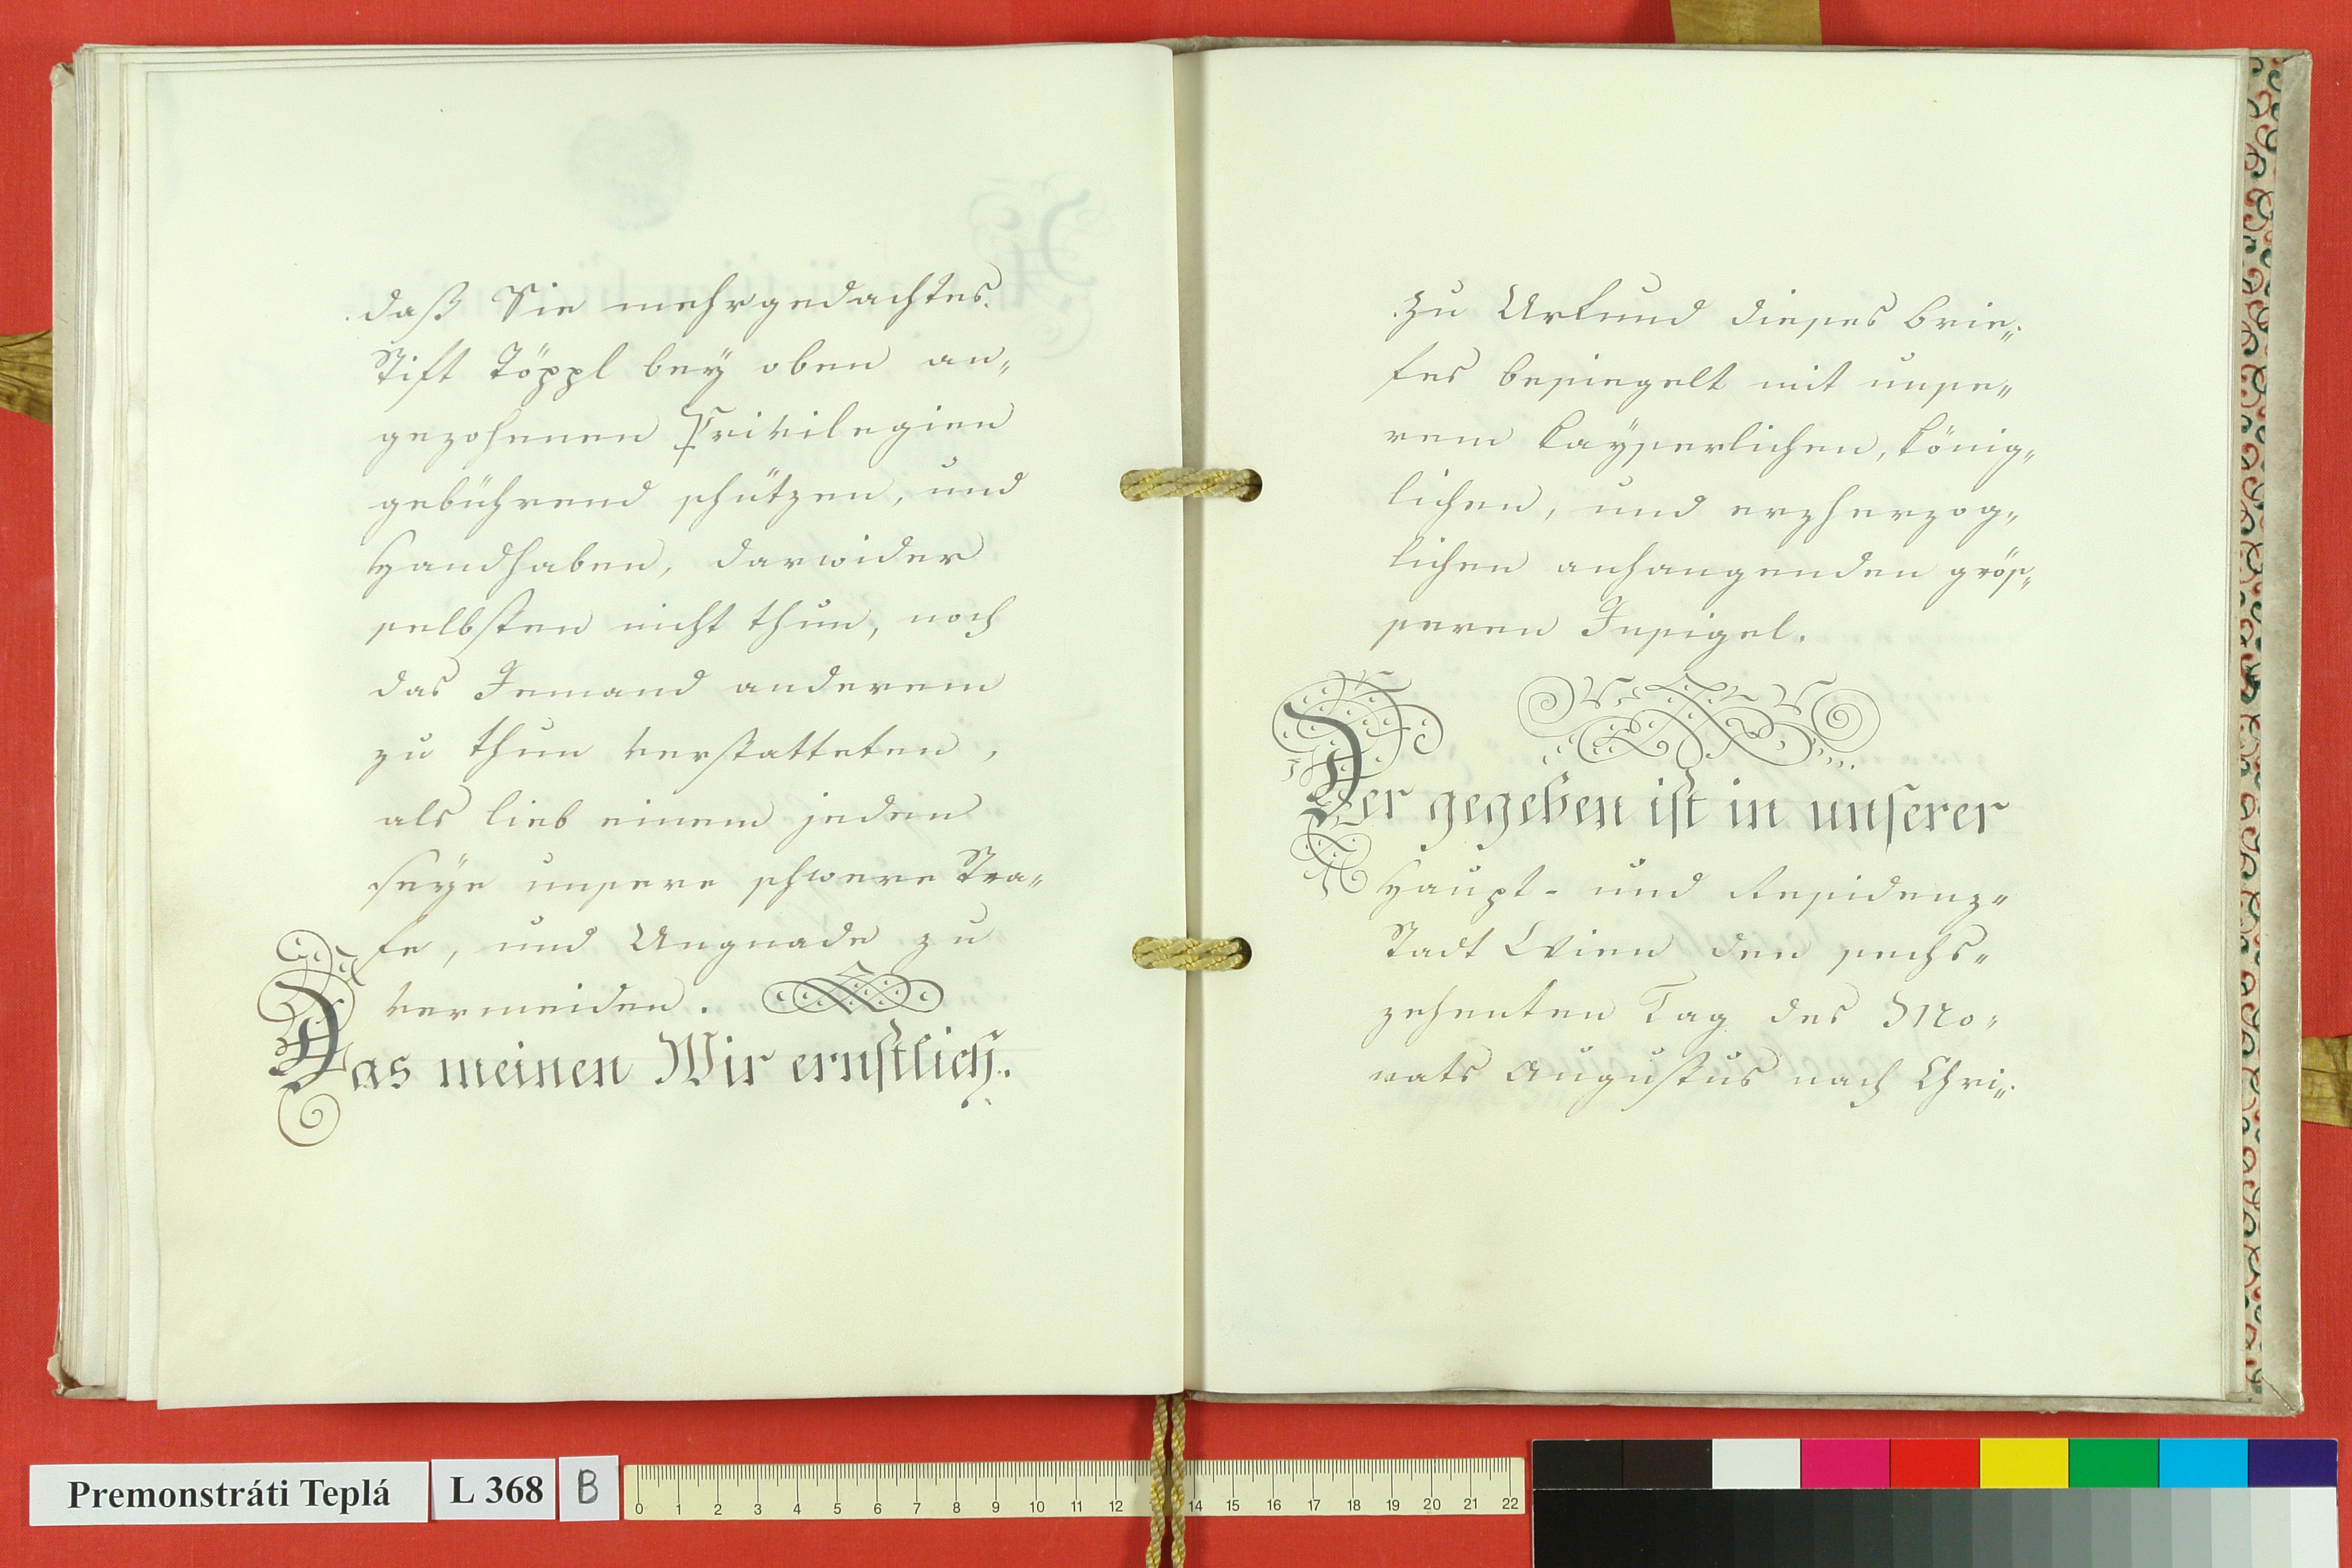 daß Sie mehrgedachtes
Stift Töppl bey oben an„
gezohenen Privilegien
gebührend schützen, und
Handhaben, darwider
selbsten nicht thun, noch
das Jemand anderem
zu thun verstatteten,
als lieb einem jeden
seye unsere schwere Stra„
fe, und Ungnade zu
vermeiden.
Das meinen Wir ernstlich.
Zu Urkund dieses Brie„
fes besiegelt mit unse„
rem kayserlichen, könig„
lichen, und erzherzog„
lichen anhangenden grös„
seren Insigel.
Der gegeben ist in unserer
Haupt- und Residenz„
Stadt Wien den sechs„
zehenten Tag des Mo„
nats Augustus nach Chri„
Premonstráti Teplá L 368 B
0 1 2 3 4 5 6 7 8 9 10 11 12 14 15 16 17 18 19 20 21 22